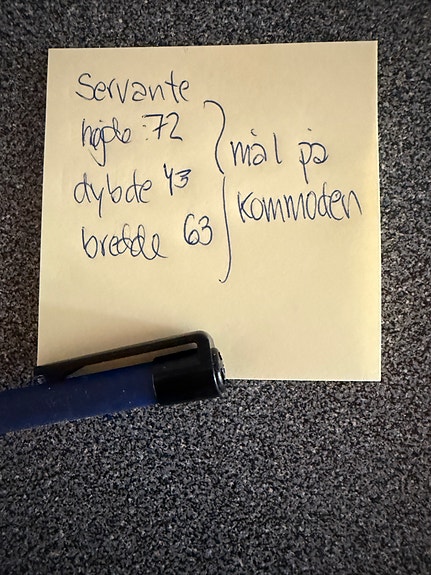 Servante
højde :72
dybde 43
bredde 63
mål på
kommoden